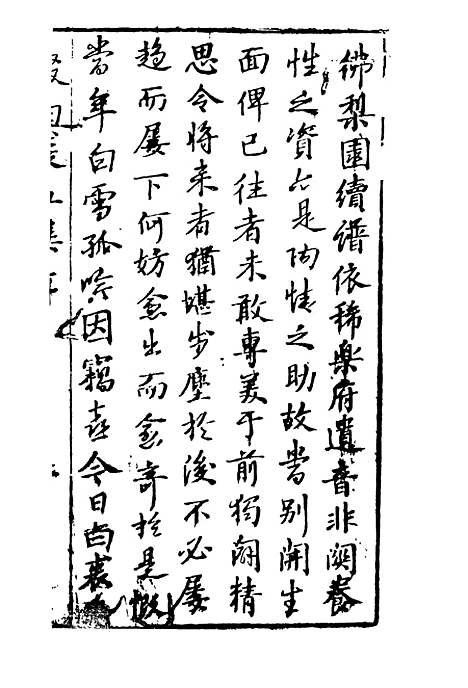 彿梨園續譜依稀樂府遺音非闕養
性之資亦是陶情之助故當別開生
面俾已往者未敢專美于前獨闢精
思令將來者猶堪步塵於後不必屢
趨而屢下何妨愈出而愈奇於是假
當年白雪孤吟因竊喜今日白裘